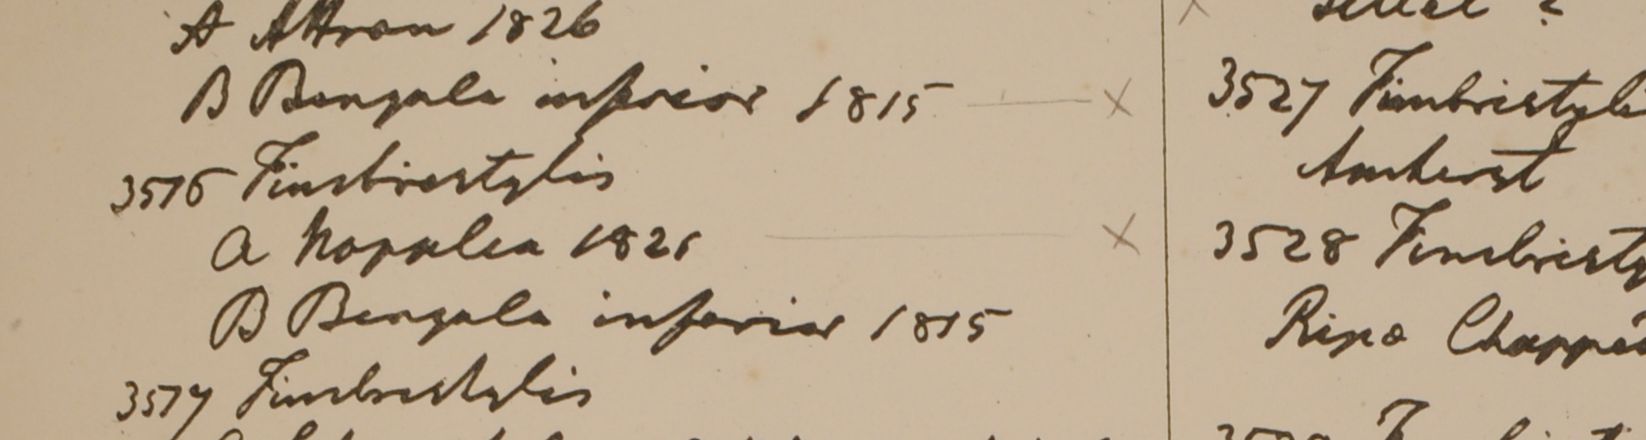 A Attran 1826
B Bengala inferior 1815 — x
3516 Fimbristylis
a Nopalea 1821 — x
B Bengala inferior 1815
3517 Fimbristylis
x
3527 Fimbristyli
Amherst
3528 Fimbristy
Ripa Chappa